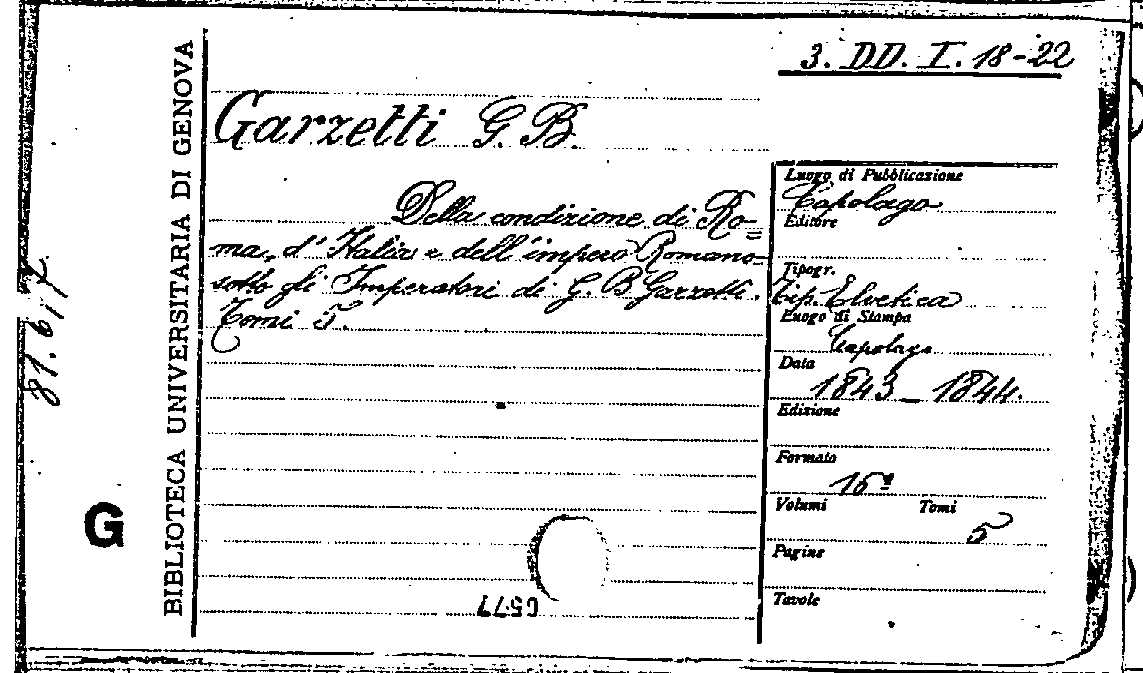 3. DD. I. 18-22
BIBLIOTECA UNIVERSITARIA DI GENOVA
G
Garzetti G. B.
Della condizione di Ro=
ma, d'Italia e dell'impero Romano=
sotto gli Imperatori di G. B Garzetti.
Tomi 5.
Luogo di Pubblicazione
Capolago
Editore
Tipogr.
Tip. Elvetica
Luogo di Stampa
Capolago
Data
1843 - 1844.
Edizione
Formato
16º
Volumi Tomi
5
Pagine
Tavole